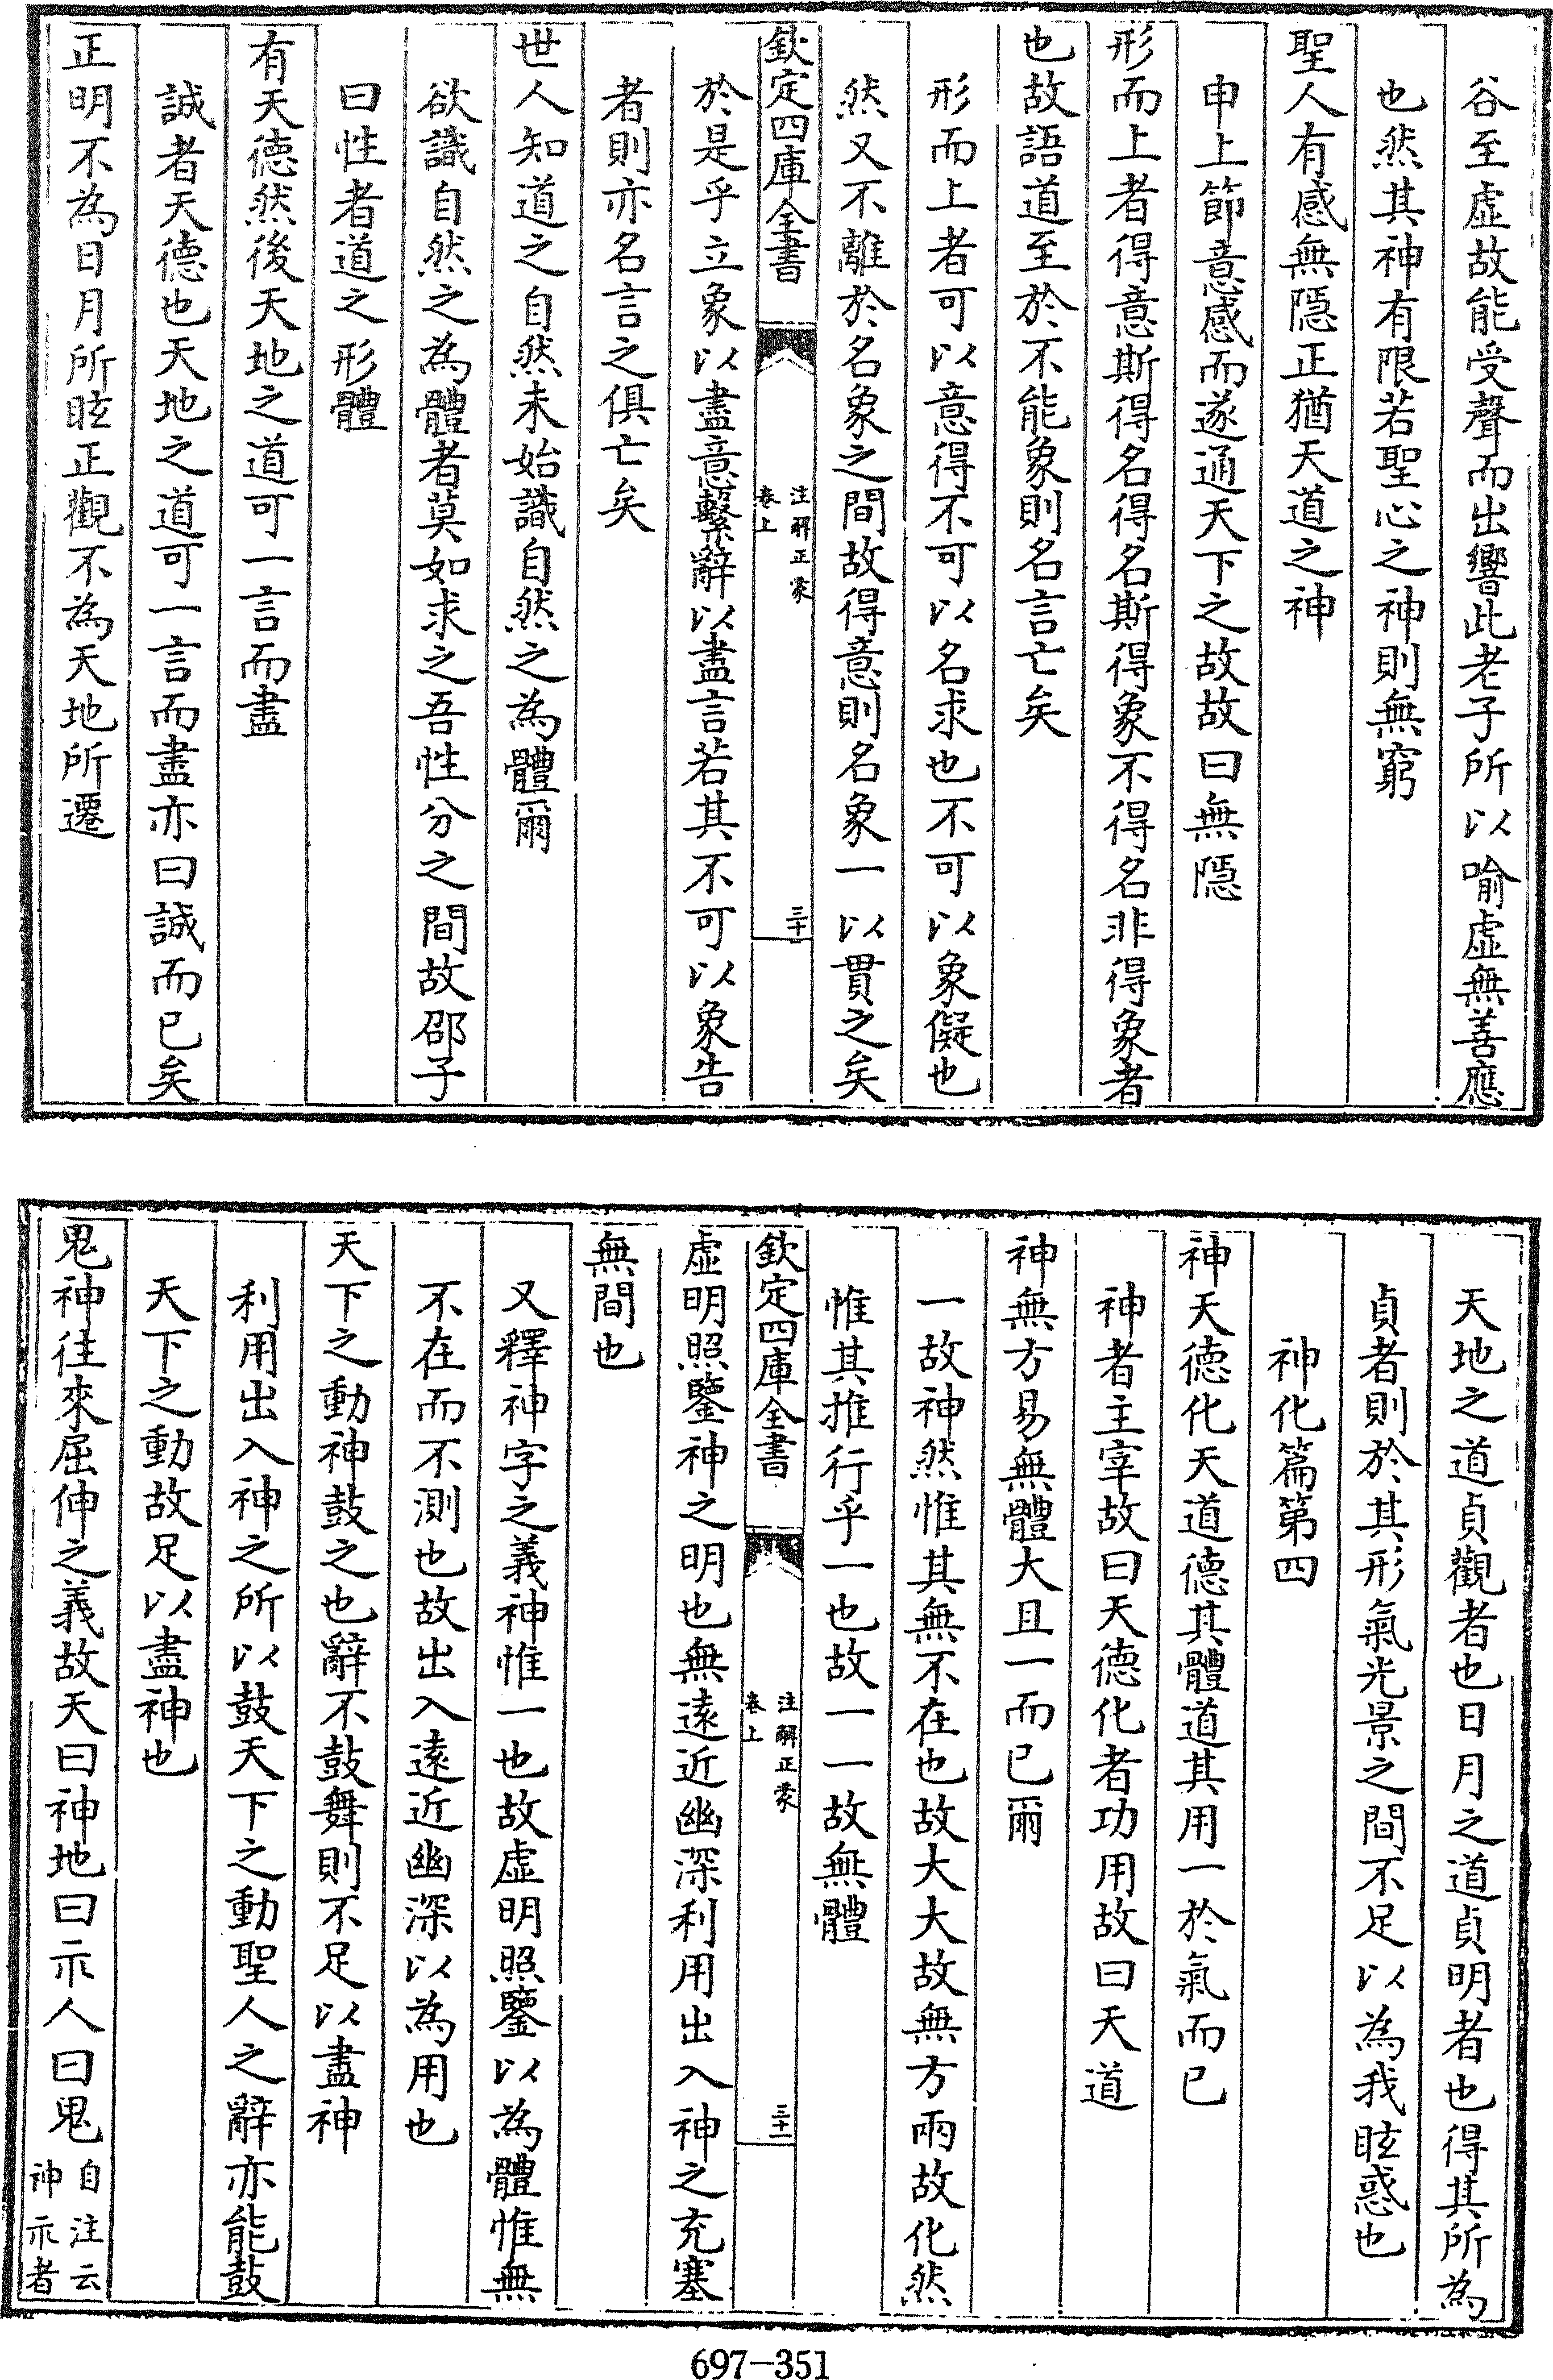 谷至虛故能受聲而出響此老子所以喻虛無善應
也然其神有限若聖心之神則無窮
聖人有感無隱正猶天道之神
申上節意感而遂通天下之故故曰無隱
形而上者得意斯得名得名斯得象不得名非得象者
也故語道至於不能象則名言亡矣
形而上者可以意得不可以名求也不可以象儗也
然又不離於名象之間故得意則名象一以貫之矣
欽定四庫全書
注解正蒙
卷上
三十一
於是乎立象以盡意繫辭以盡言若其不可以象告
者則亦名言之俱亡矣
世人知道之自然未始識自然之為體爾
欲識自然之為體者莫如求之吾性分之間故邵子
曰性者道之形體
有天德然後天地之道可一言而盡
誠者天德也天地之道可一言而盡亦曰誠而已矣
正明不為日月所眩正觀不為天地所遷
天地之道貞觀者也日月之道貞明者也得其所為
貞者則於其形氣光景之間不足以為我眩惑也
神化篇第四
神天德化天道德其體道其用一於氣而已
神者主宰故曰天德化者功用故曰天道
神無方易無體大且一而已爾
一故神然惟其無不在也故大大故無方兩故化然
惟其推行乎一也故一一故無體
欽定四庫全書
注解正蒙
卷上
三十二
虛明照鑒神之明也無遠近幽深利用出入神之充塞
無間也
又釋神字之義神惟一也故虛明照鑒以為體惟無
不在而不測也故出入遠近幽深以為用也
天下之動神鼓之也辭不鼓舞則不足以盡神
利用出入神之所以鼓天下之動聖人之辭亦能鼓
天下之動故足以盡神也
鬼神往來屈伸之義故天曰神地曰示人曰鬼自注云
神示者
697-351